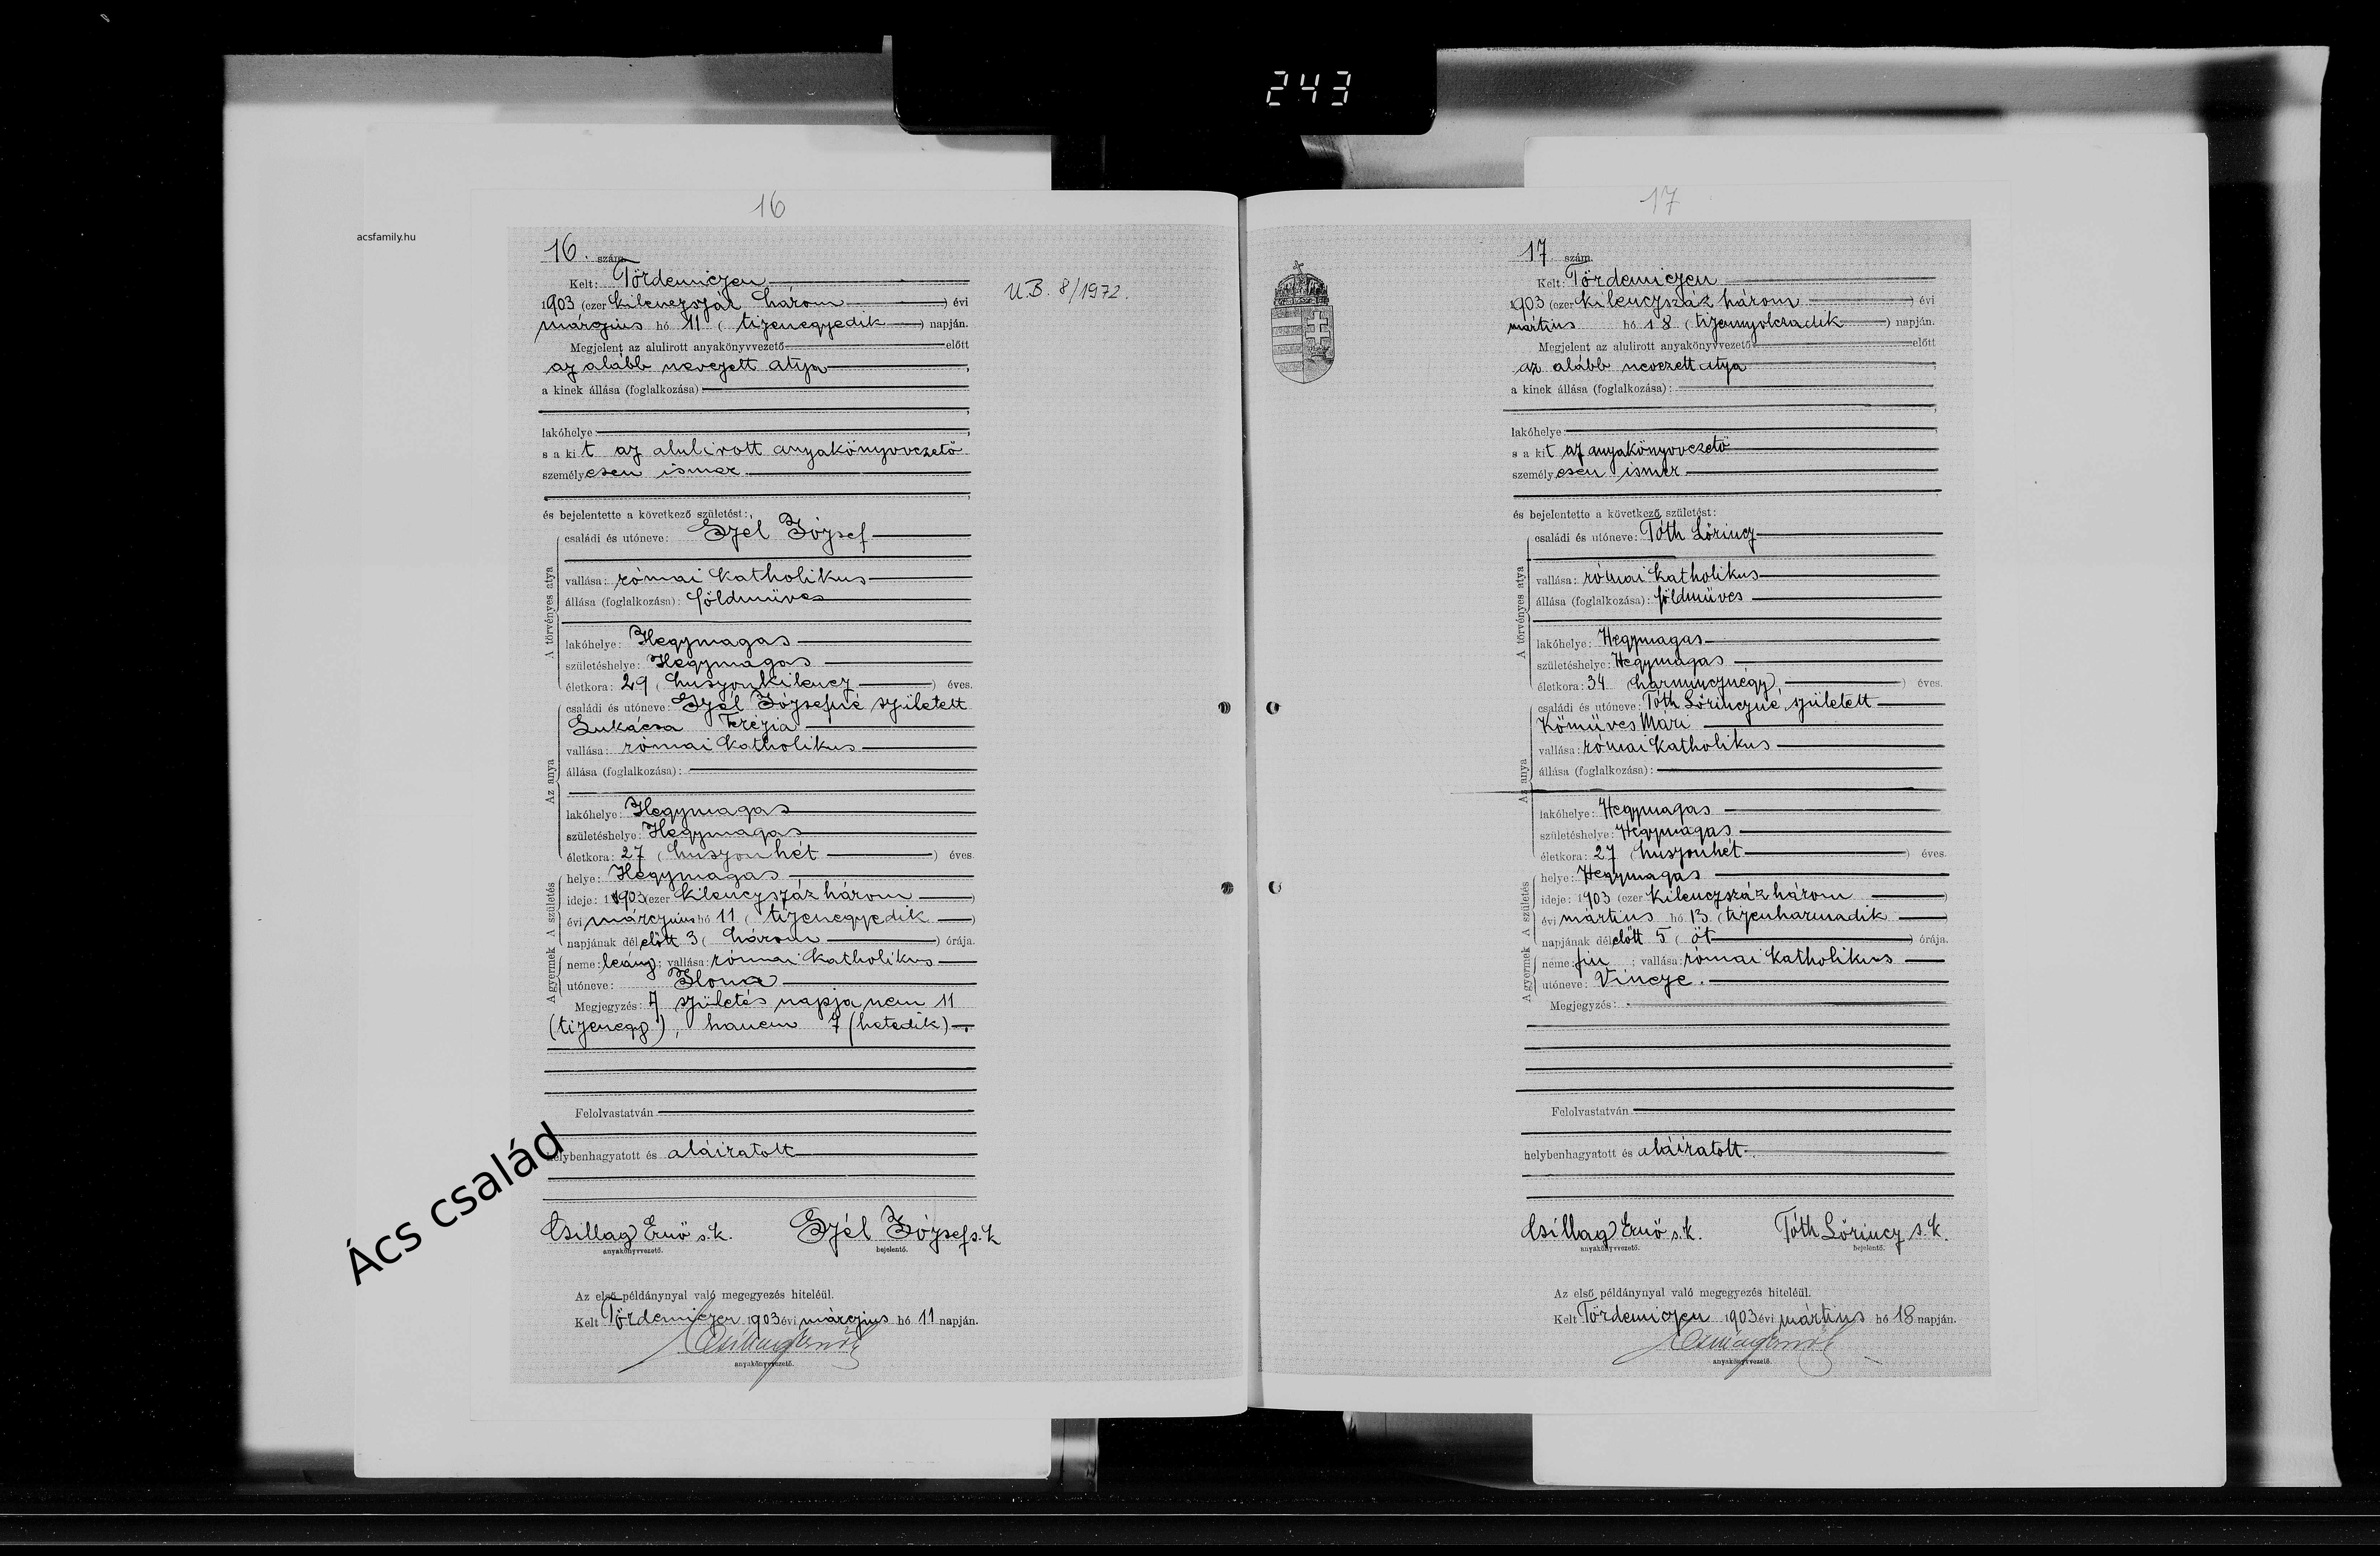 243
16
acsfamily.hu
16. szám.
Kelt: Tördemiczen
1903 (ezer kilenczszáz három) évi
márczius hó 11 (tizenegyedik) napján.
Megjelent az alulirott anyakönyvvezető előtt
az alább nevezett atya,
a kinek állása (foglalkozása):
lakóhelye
s a kit az alulirott anyakönyvvezető
személyesen ismer.
és bejelentette a következő születést:
A törvényes atya
családi és utóneve: Szél József
vallása: római katholikus
állása (foglalkozása): földmüves
lakóhelye: Hegymagas
születéshelye: Hegymagas
életkora: 29 (huszonkilencz) éves.
Az anya
családi és utóneve: Szél Józsefné született
Lukácsa Terézia
vallása: római katholikus
állása (foglalkozása):
lakóhelye: Hegymagas
születéshelye: Hegymagas
életkora: 27 (huszonhét) éves.
A születés
helye: Hegymagas
ideje: 1903 (ezer kilenczszáz három)
évi márczius hó 11 (tizenegyedik)
napjának délelőtt 3 (három) órája.
A gyermek
neme: leány; vallása: római katholikus
utóneve: Ilona
Megjegyzés: A születés napja nem 11
(tizenegy), hanem 7 (hetedik)
Felolvastatván
helybenhagyatott és aláiratott
Csillag Ernő s.k. Szél József s.k
anyakönyvvezető. bejelentő.
Az első példánynyal való megegyezés hiteléül.
Kelt Tördemiczen 1903 évi márczius hó 11 napján.
Csillag Ernő
anyakönyvvezető.
U.B. 8/1972.
Ács család
17
17 szám.
Kelt: Tördemiczen
1903 (ezer kilenczszáz három) évi
mártius hó 18 (tizennyolczadik) napján.
Megjelent az alulirott anyakönyvvezető előtt
az alább nevezett atya,
a kinek állása (foglalkozása):
lakóhelye:
s a kit az anyakönyvvezető
személyesen ismer
és bejelentette a következő születést:
A törvényes atya
családi és utóneve: Tóth Lőrincz
vallása: római katholikus
állása (foglalkozása): földmüves
lakóhelye: Hegymagas
születéshelye: Hegymagas
életkora: 34 (harmincznégy) éves.
Az anya
családi és utóneve: Tóth Lőrinczné, született
Kőmüves Mári
vallása: római katholikus
állása (foglalkozása):
lakóhelye: Hegymagas
születéshelye: Hegymagas
életkora: 27 (huszonhét) éves.
A születés
helye: Hegymagas
ideje: 1903 (ezer kilenczszáz három)
évi mártius hó 13 (tizenharmadik)
napjának délelőtt 5 (öt) órája.
A gyermek
neme: fiu; vallása: római katholikus
utóneve: Vincze.
Megjegyzés:
Felolvastatván
helybenhagyatott és aláiratott.
Csillag Ernő s.k. Tóth Lőrincz s.k.
anyakönyvvezető. bejelentő.
Az első példánynyal való megegyezés hiteléül.
Kelt Tördemiczen 1903 évi mártius hó 18 napján.
Csillag Ernő
anyakönyvvezető.